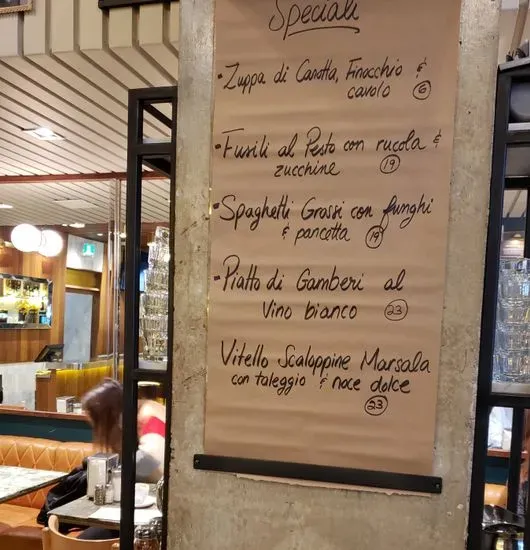 Speciali
• Zuppa di Carotta, Finocchio &
cavolo 6
• Fusili al Pesto con rucola &
zucchine 19
• Spaghetti Grossi con funghi
& pancotta 19
• Piatto di Gamberi al
Vino bianco 23
Vitello Scaloppine Marsala
con taleggio & noce dolce
23